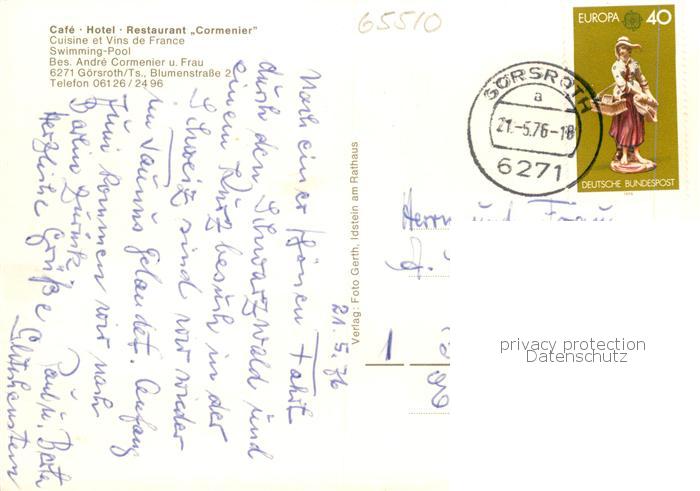 Café · Hotel · Restaurant „Cormenier"
Cuisine et Vins de France
Swimming-Pool
Bes. André Cormenier u. Frau
6271 Görsroth/Ts., Blumenstraße 2
Telefon 06126 / 24 96
65510
EUROPA 40
DEUTSCHE BUNDESPOST
1976
GÖRSROTH
a
21.-5.76-18
6271
21.5.76
Nach einer schönen Fahrt
durch dem Schwarzwald und
einem Kurzbesuch in der
Schweiz sind wir wieder
im Taunus gelandet. Anfang
Juni kommen wir nach
Berlin zurück.
Herzliche Grüße Paul u. Berta
Verlag: Foto Gerth, Idstein am Rathaus
Herrn und Frau
1
privacy protection
Datenschutz